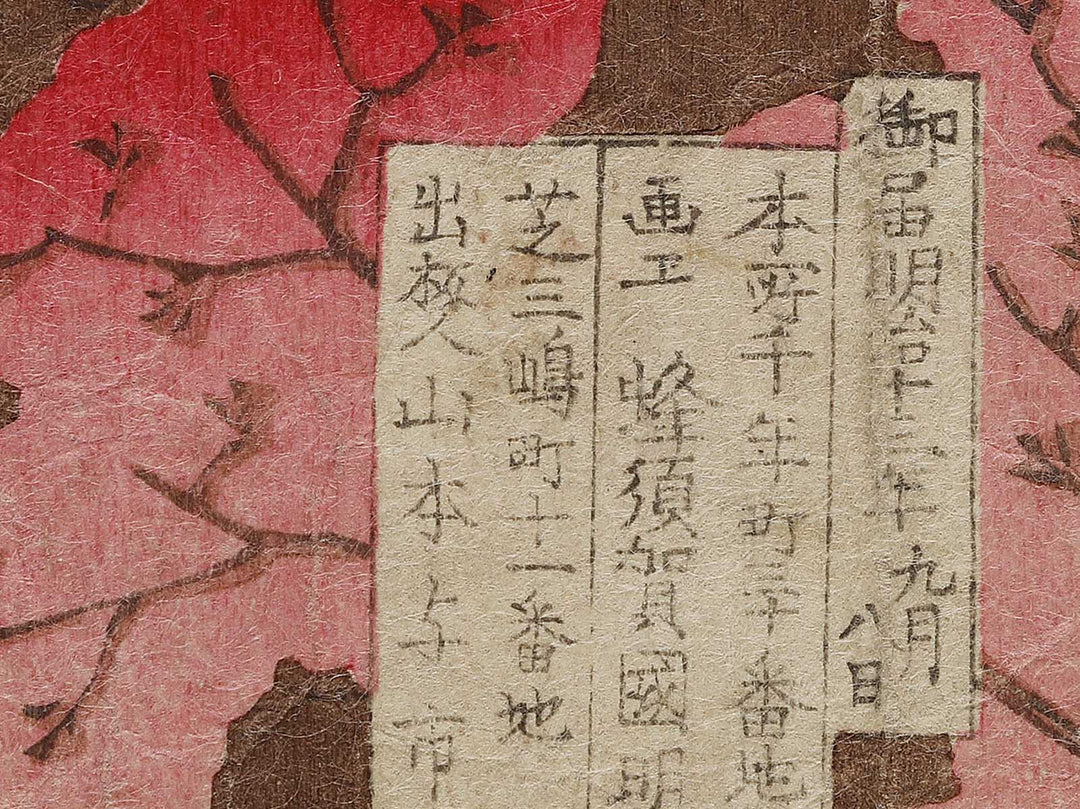 御届明治十三年九月
八日
本所千年町三十番地
画工 蜂須賀國明
芝三嶋町十一番地
出板人山本与市